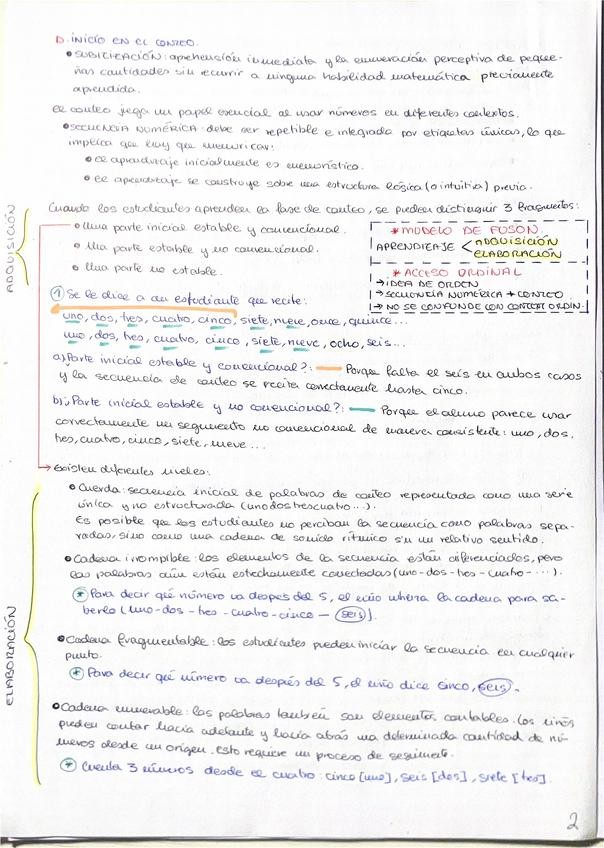 D. INICIO EN EL CONTEO.
• SUBITIZACIÓN: aprehensión inmediata y la enumeración perceptiva de peque-
ñas cantidades sin recurrir a ninguna habilidad matemática previamente
aprendida.
El conteo juega un papel esencial al usar números en diferentes contextos.
• SECUENCIA NUMÉRICA: debe ser repetible e integrada por etiquetas únicas, lo que
implica que hay que memorizar:
• El aprendizaje inicialmente es memorístico.
• El aprendizaje se construye sobre una estructura lógica (o intuitiva) previa.
ADQUISICIÓN
Cuando los estudiantes aprenden la fase de conteo, se pueden distinguir 3 fragmentos:
• Una parte inicial estable y convencional.
• Una parte estable y no convencional.
• Una parte no estable.
* MODELO DE FUSON.
APRENDIZAJE < ADQUISICIÓN
ELABORACIÓN
* ACCESO ORDINAL
→ IDEA DE ORDEN
→ SECUENCIA NUMÉRICA + CONTEO
→ NO SE CONFUNDE CON CONTEXT ORDIN.
① Se le dice a un estudiante que recite:
uno, dos, tres, cuatro, cinco, siete, nueve, once, quince...
uno, dos, tres, cuatro, cinco, siete, nueve, ocho, seis...
a) ¿Parte inicial estable y convencional?: Porque falta el seis en ambos casos
y la secuencia de conteo se recita correctamente hasta cinco.
b) ¿Parte inicial estable y no convencional?: Porque el alumno parece usar
correctamente un segmento no convencional de manera consistente: uno, dos,
tres, cuatro, cinco, siete, nueve...
→ Existen diferentes niveles:
ELABORACIÓN
• Cuerda: secuencia inicial de palabras de conteo representada como una serie
única y no estructurada (unodostrescuatro...).
Es posible que los estudiantes no perciban la secuencia como palabras sepa-
radas, sino como una cadena de sonido rítmico sin un relativo sentido.
• Cadena irrompible: los elementos de la secuencia están diferenciados, pero
las palabras aún están estrechamente conectadas (uno-dos-tres-cuatro-...).
* Para decir qué número va después del 5, el niño la cadena para sa-
berlo (uno-dos-tres-cuatro-cinco-seis).
• Cadena fragmentable: los estudiantes pueden iniciar la secuencia en cualquier
punto.
* Para decir qué número va después del 5, el niño dice cinco, seis.
• Cadena numerable: las palabras también son elementos contables. Los niños
pueden contar hacia adelante y hacia atrás una determinada cantidad de nú-
meros desde un origen. Esto requiere un proceso de
* Cuenta 3 números desde el cuatro: cinco [uno], seis [dos], siete [tres].
2